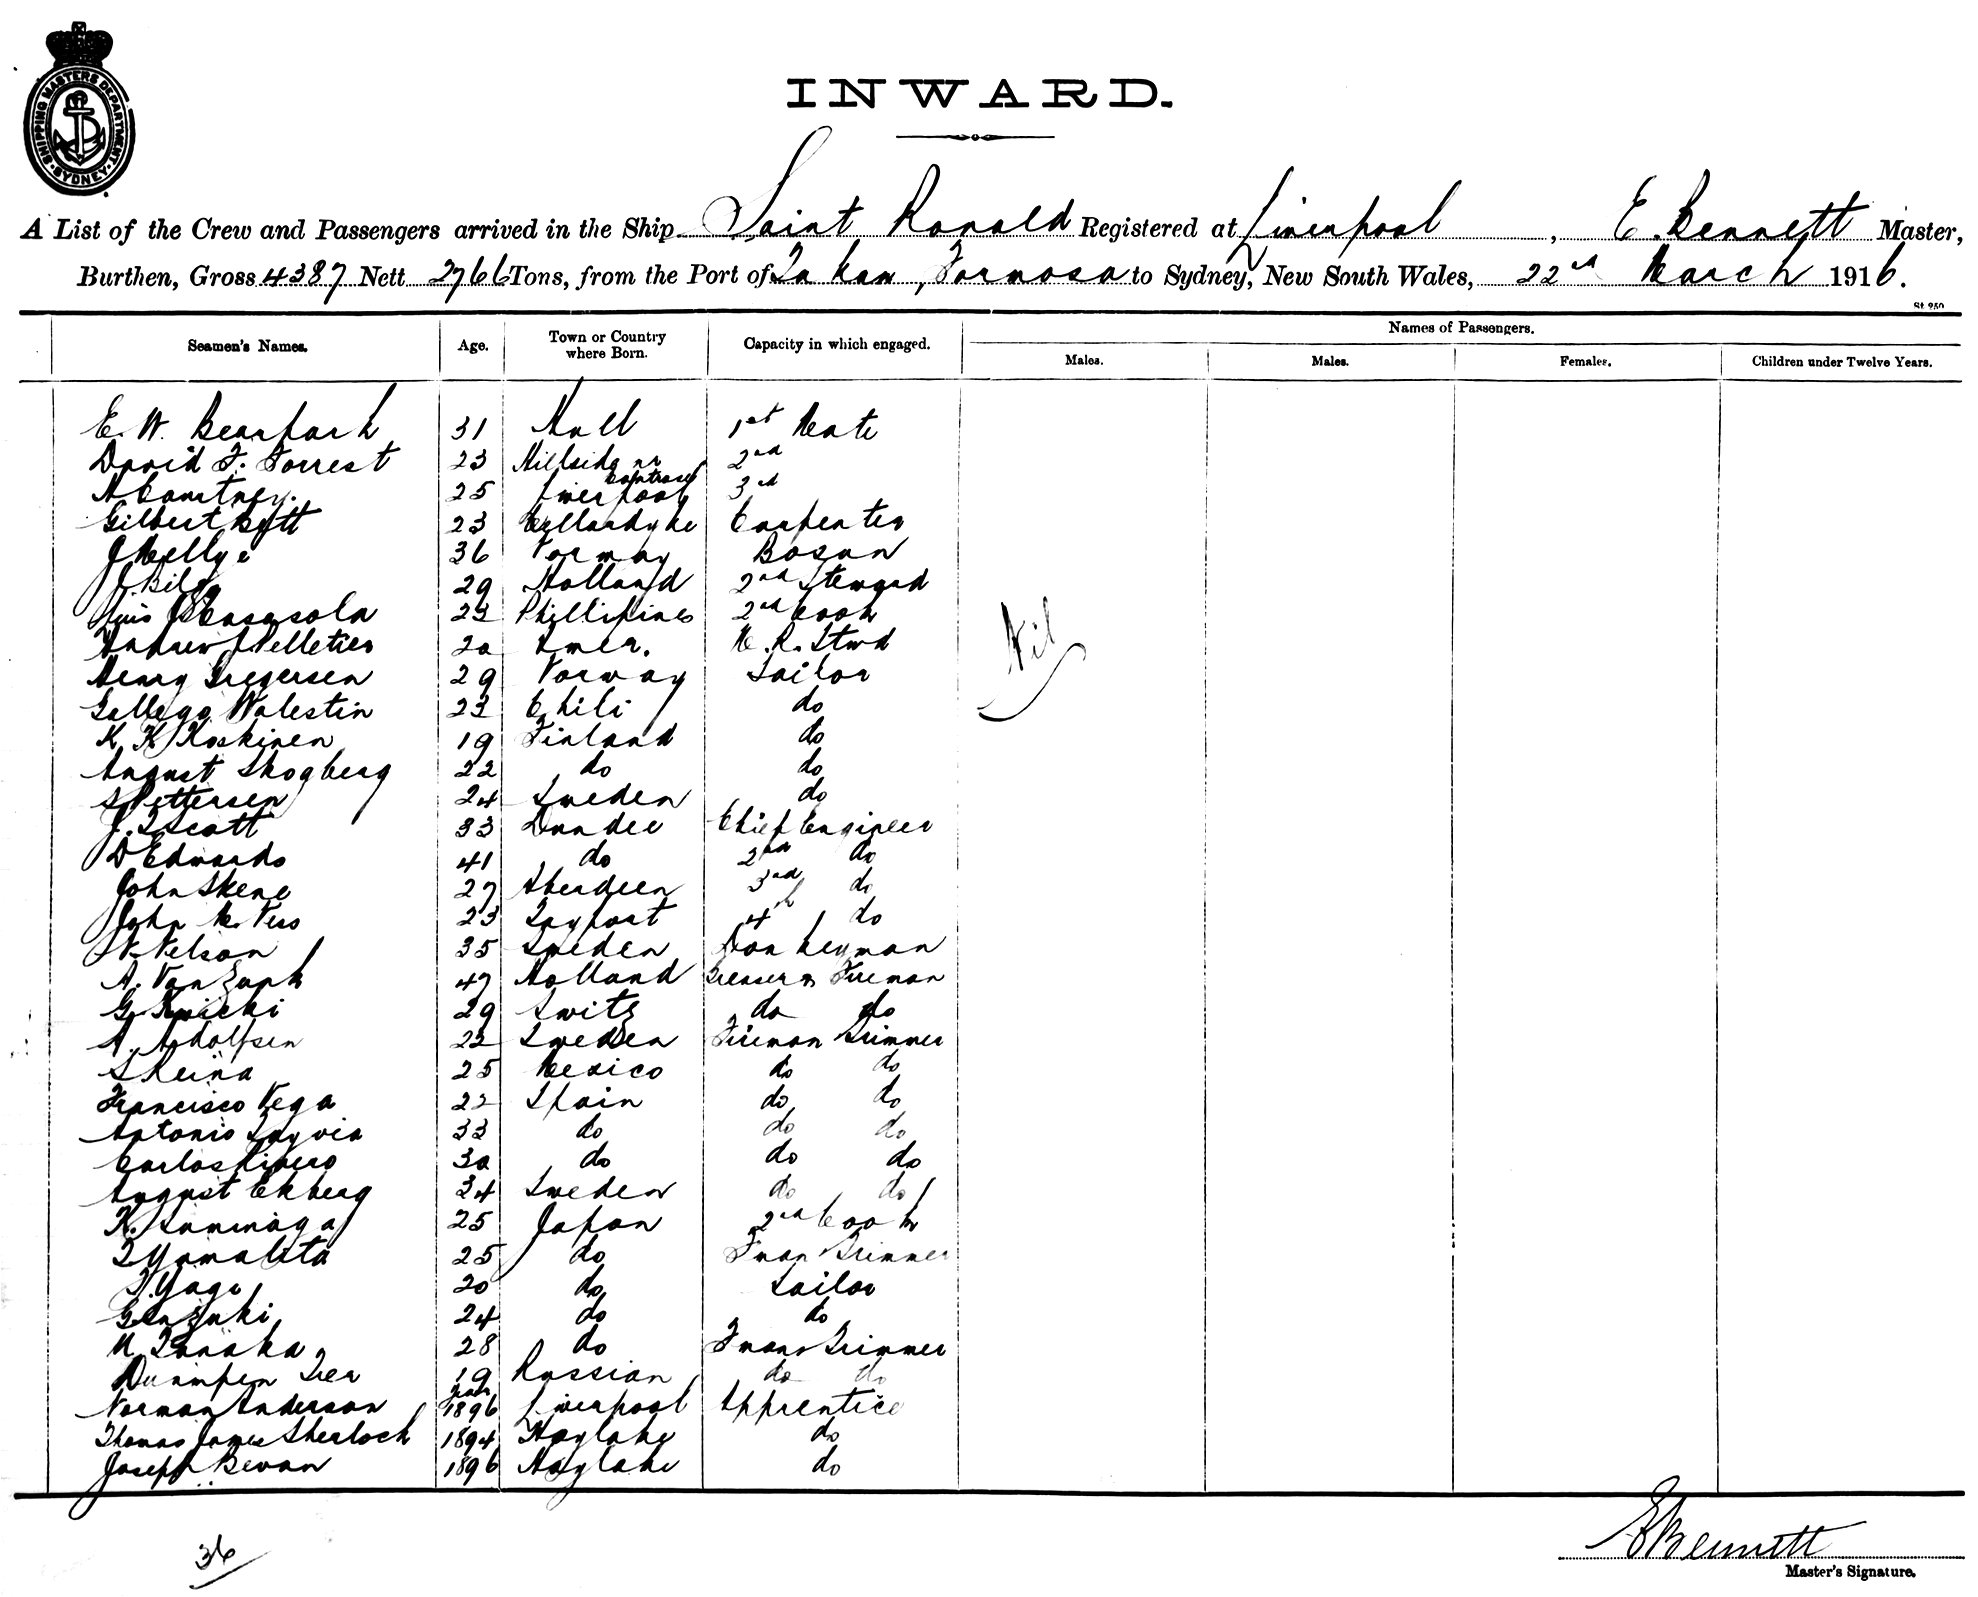 SHIPPING MASTERS DEPARTMENT · SYDNEY ·
INWARD.
A List of the Crew and Passengers arrived in the Ship Saint Ronald Registered at Liverpool, E. Bennett Master,
Burthen, Gross 4387 Nett 2766 Tons, from the Port of Takaw, Formosa to Sydney, New South Wales, 22nd March 1916.
St 250
Seamen's Names. Age. Town or Country where Born. Capacity in which engaged. Names of Passengers.
Males. Males. Females. Children under Twelve Years.
E. W. Bearpark 31 Hull 1st Mate
David F. Forrest 23 Hillside nr Montrose 2nd
H Courtney. 25 Liverpool 3rd
Gilbert Bett 23 Cellardyke Carpenter
J Mellye 36 Norway Bosun
J. Bil 29 Holland 2nd Steward
Luis Casasola 23 Phillipines 2nd Cook
Andrew Pelletier 20 Amer. M. R. Stwd
Nil
Henry Gregersen 29 Norway Sailor
Gallego Walestin 23 Chili do
K. K. Koskinen 19 Finland do
August Skogberg 22 do do
S Pettersen 24 Sweden do
J. T Scott 33 Dundee Chief Engineer
D Edwards 41 do 2nd do
John Skene 27 Aberdeen 3rd do
John M. 23 Tayport 4th do
N. Nelson 35 Sweden Donkeyman
A. Van Zuph 47 Holland Greaser & Fireman
G. 29 Switz do do
A. Adolfsen 22 Sweden Fireman Trimmer
S Reina 25 Mexico do do
Francisco Vega 22 Spain do do
Antonio 33 do do do
Carlos Rivero 30 do do do
August Ekberg 34 Sweden do do
K. 25 Japan 2nd Cook
T Yamakita 25 do Fman Trimmer
T. Yagi 20 do Sailor
24 do do
M Tanaka 28 do Fman Trimmer
19 Russian do do
Norman Anderson 1896 Liverpool Apprentice
Thomas James Sherlock 1894 Hoylake do
Joseph Bevan 1896 Hoylake do
36
E Bennett
Master's Signature.